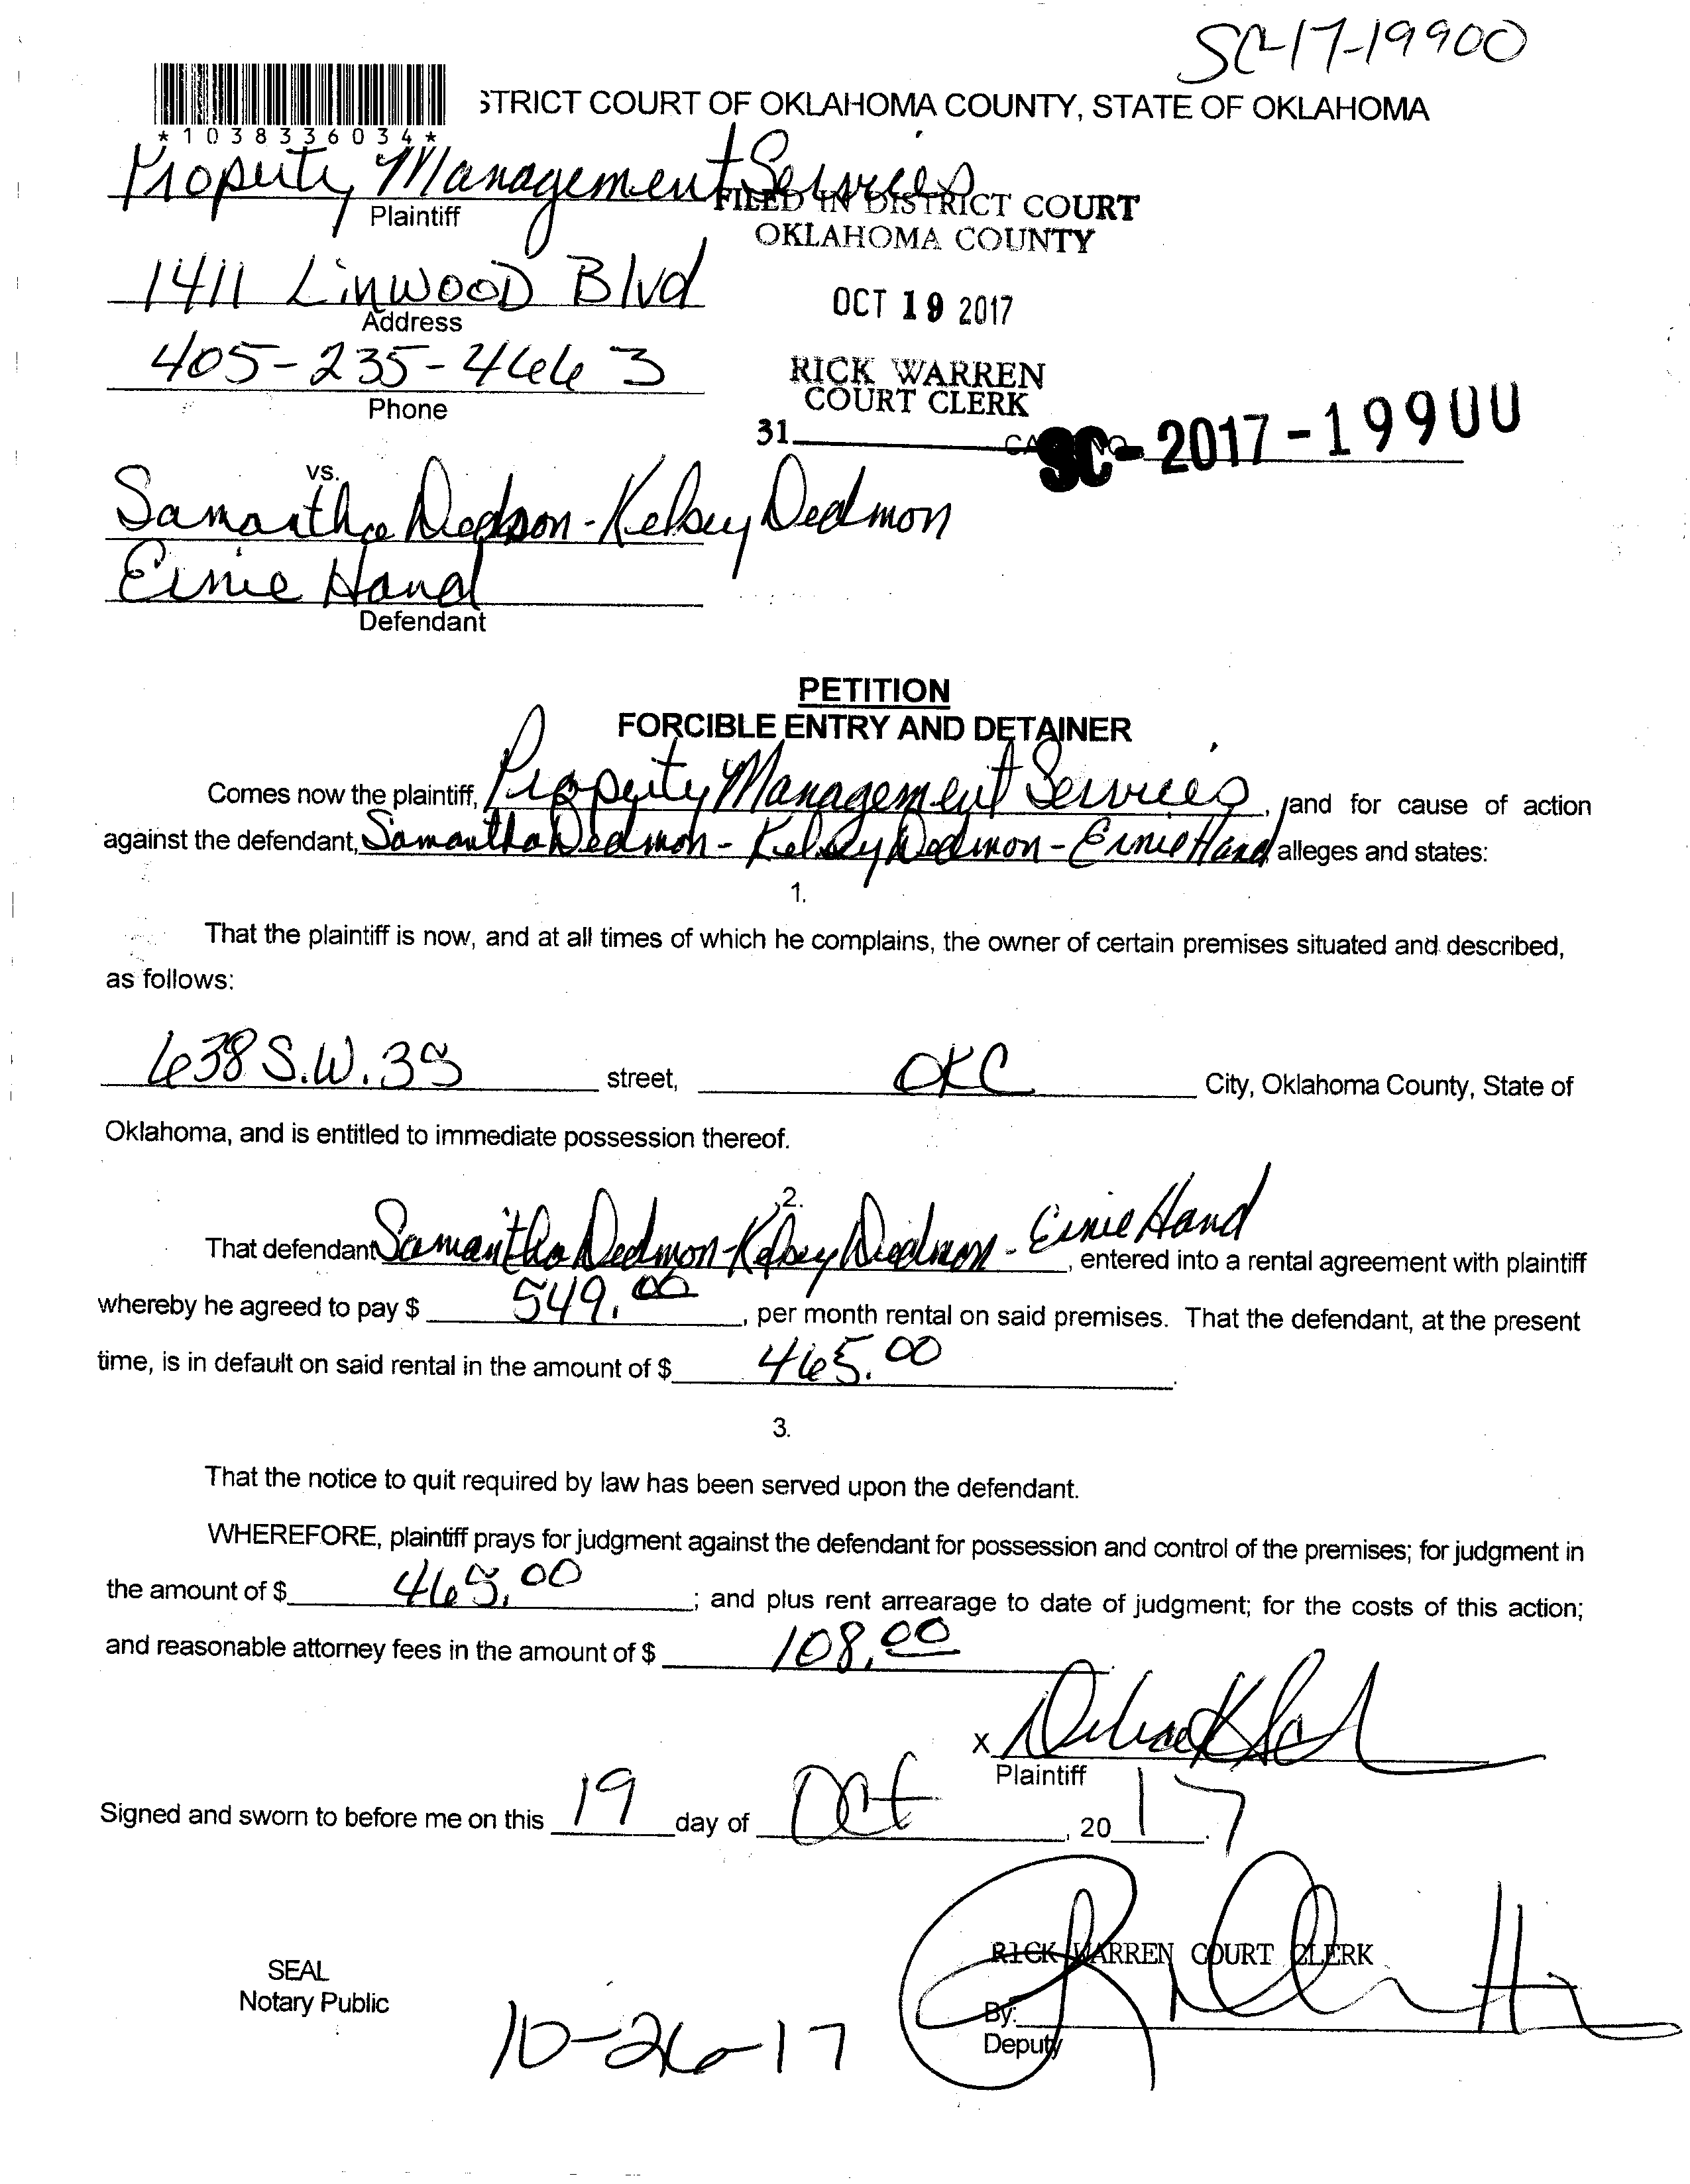 SC-17-19900
STRICT COURT OF OKLAHOMA COUNTY, STATE OF OKLAHOMA
*1038336034*
Property Management Services
Plaintiff
FILED IN DISTRICT COURT
OKLAHOMA COUNTY
1411 Linwood Blvd
Address
OCT 19 2017
405-235-4663
Phone
RICK WARREN
COURT CLERK
31
SC-2017-19900
vs.
Samantha Dedmon-Kelsey Dedmon
Ernie Hand
Defendant
PETITION
FORCIBLE ENTRY AND DETAINER
Comes now the plaintiff, Property Management Services, and for cause of action
against the defendant, Samantha Dedmon-Kelsey Dedmon-Ernie Hand alleges and states:
1.
That the plaintiff is now, and at all times of which he complains, the owner of certain premises situated and described,
as follows:
638 S.W. 35 street, OKC City, Oklahoma County, State of
Oklahoma, and is entitled to immediate possession thereof.
2.
That defendant Samantha Dedmon-Kelsey Dedmon-Ernie Hand, entered into a rental agreement with plaintiff
whereby he agreed to pay $ 549.00, per month rental on said premises. That the defendant, at the present
time, is in default on said rental in the amount of $ 465.00.
3.
That the notice to quit required by law has been served upon the defendant.
WHEREFORE, plaintiff prays for judgment against the defendant for possession and control of the premises; for judgment in
the amount of $ 465.00; and plus rent arrearage to date of judgment; for the costs of this action;
and reasonable attorney fees in the amount of $ 108.00
X
Plaintiff
Signed and sworn to before me on this 19 day of Oct, 2017.
RICK WARREN COURT CLERK
SEAL
Notary Public
By:
Deputy
10-26-17